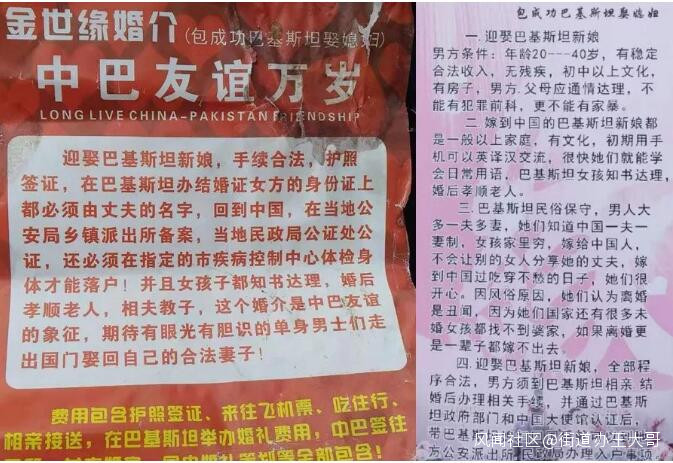 金世缘婚介(包成功巴基斯坦娶媳妇)
中巴友谊万岁
LONG LIVE CHINA-PAKISTAN FRIENDSHIP
迎娶巴基斯坦新娘，手续合法，护照
签证，在巴基斯坦办结婚证女方的身份证上
都必须由丈夫的名字，回到中国，在当地公
安局乡镇派出所备案，当地民政局公证处公
证，还必须在指定的市疾病控制中心体检身
体才能落户！并且女孩子都知书达理，婚后
孝顺老人，相夫教子，这个婚介是中巴友谊
的象征，期待有眼光有胆识的单身男士们走
出国门娶回自己的合法妻子！
费用包含护照签证、来往飞机票、吃住行、
相亲接送，在巴基斯坦举办婚礼费用，中巴签往
包成功巴基斯坦娶媳妇
一.迎娶巴基斯坦新娘
男方条件：年龄20---40岁，有稳定
合法收入，无残疾，初中以上文化，
有房子，男方.父母应通情达理，不
能有犯罪前科，更不能有家暴。
二.嫁到中国的巴基斯坦新娘都
是一般以上家庭，有文化，初期用手
机可以英译汉交流，很快她们就能学
会日常用语，巴基斯坦女孩知书达理，
婚后孝顺老人。
三.巴基斯坦民俗保守，男人大
多一夫多妻，她们知道中国一夫一
妻制，女孩家里穷，嫁给中国人，
不会让别的女人分享她的丈夫，嫁
到中国过吃穿不愁的日子，她们很
开心。因风俗原因，她们认为离婚
是丑闻，因为她们国家还有很多未
婚女孩都找不到婆家，如果离婚更
是一辈子都嫁不出去。
四.迎娶巴基斯坦新娘，全部程
序合法，男方须到巴基斯坦相亲.结
婚后办理相关手续，并通过巴基斯
坦政府部门和中国大使馆认证后，
带巴基斯
方公安派出所
办理入户事项
风闻社区@街道办王大哥